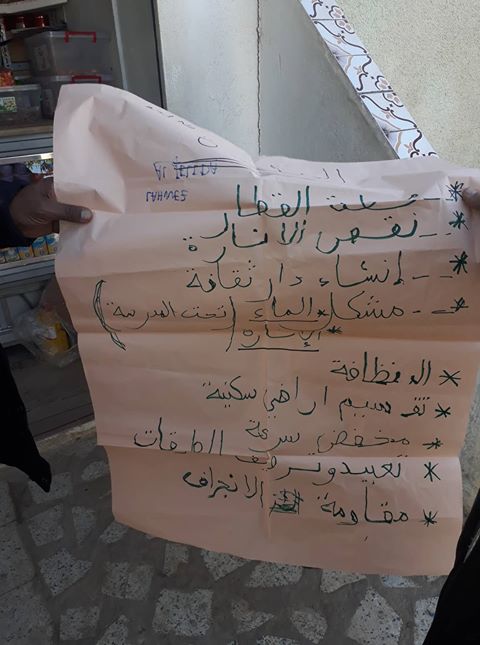 LAHWEZ
* -- محطة القطار
* -- نقص الانارة
* -- إنشاء دار ثقافة
* -- مشكل الماء (تحت المدرسة)
* الإنارة
* النظافة
* تقسيم اراضي سكنية
* مخفض سرعة
* تعبيد وترصيف الطرقات
* مقاومة الانجراف